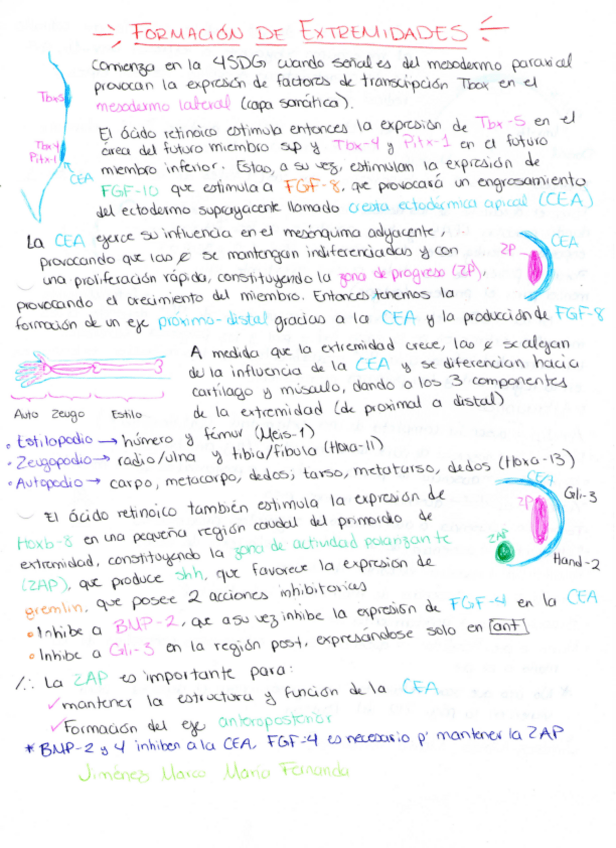 FORMACIÓN DE EXTREMIDADES
Comienza en la 4SDG cuando señales del mesodermo paraxial
provocan la expresión de factores de transcripción Tbox en el
mesodermo lateral (capa somática).
Tbx5
El ácido retinoico estimula entonces la expresión de Tbx-5 en el
área del futuro miembro sup y Tbx-4 y Pitx-1 en el futuro
Tbx4
Pitx-1
miembro inferior. Estas, a su vez, estimulan la expresión de
CEA
FGF-10 que estimula a FGF-8, que provocará un engrosamiento
del ectodermo suprayacente llamado cresta ectodérmica apical (CEA)
La CEA ejerce su influencia en el mesénquima adyacente,
provocando que las ¢ se mantengan indiferenciadas y con
una proliferación rápida, constituyendo la zona de progreso (ZP),
provocando el crecimiento del miembro. Entonces tenemos la
formación de un eje próximo-distal gracias a la CEA y la producción de FGF-8
ZP
CEA
A medida que la extremidad crece, las ¢ se alejan
de la influencia de la CEA y se diferencian hacia
cartílago y músculo, dando a los 3 componentes
de la extremidad (de proximal a distal)
Auto Zeugo Estilo
• Estilopodio → húmero y fémur (Meis-1)
• Zeugopodio → radio/ulna y tibia/fíbula (Hoxa-11)
• Autopodio → carpo, metacarpo, dedos; tarso, metatarso, dedos (Hoxa-13)
El ácido retinoico también estimula la expresión de
Hoxb-8 en una pequeña región caudal del primordio de
extremidad, constituyendo la zona de actividad polarizante
(ZAP), que produce shh, que favorece la expresión de
gremlin, que posee 2 acciones inhibitorias
CEA
Gli-3
ZP
ZAP
Hand-2
• Inhibe a BMP-2, que a su vez inhibe la expresión de FGF-4 en la CEA
• Inhibe a Gli-3 en la región post, expresándose solo en ant
/∴ La ZAP es importante para:
✓ mantener la estructura y función de la CEA
✓ Formación del eje anteroposterior
* BMP-2 y 4 inhiben a la CEA, FGF-4 es necesario p' mantener la ZAP
Jiménez Marco María Fernanda